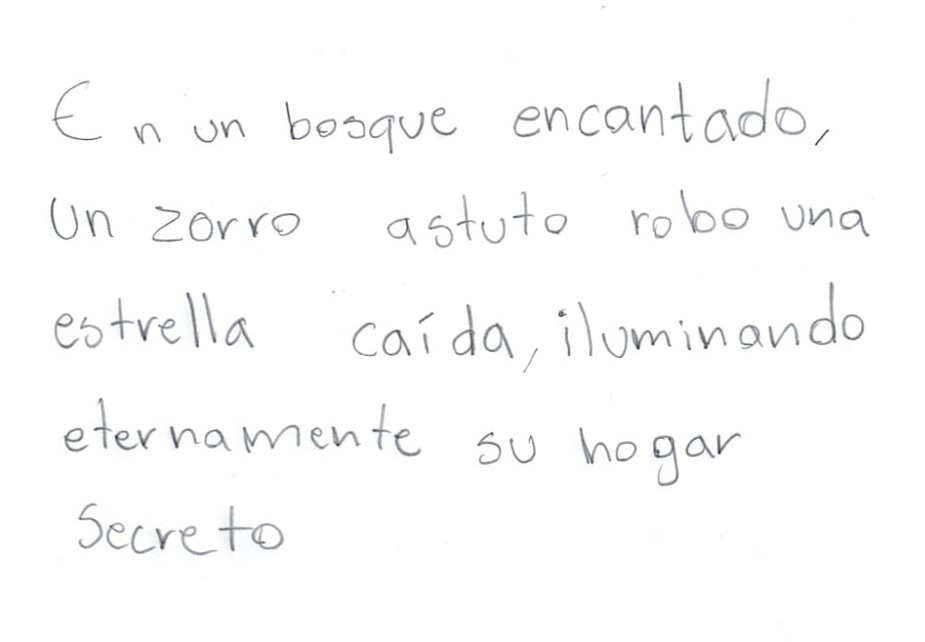 En un bosque encantado,
un zorro astuto robo una
estrella caída, iluminando
eternamente su hogar
secreto